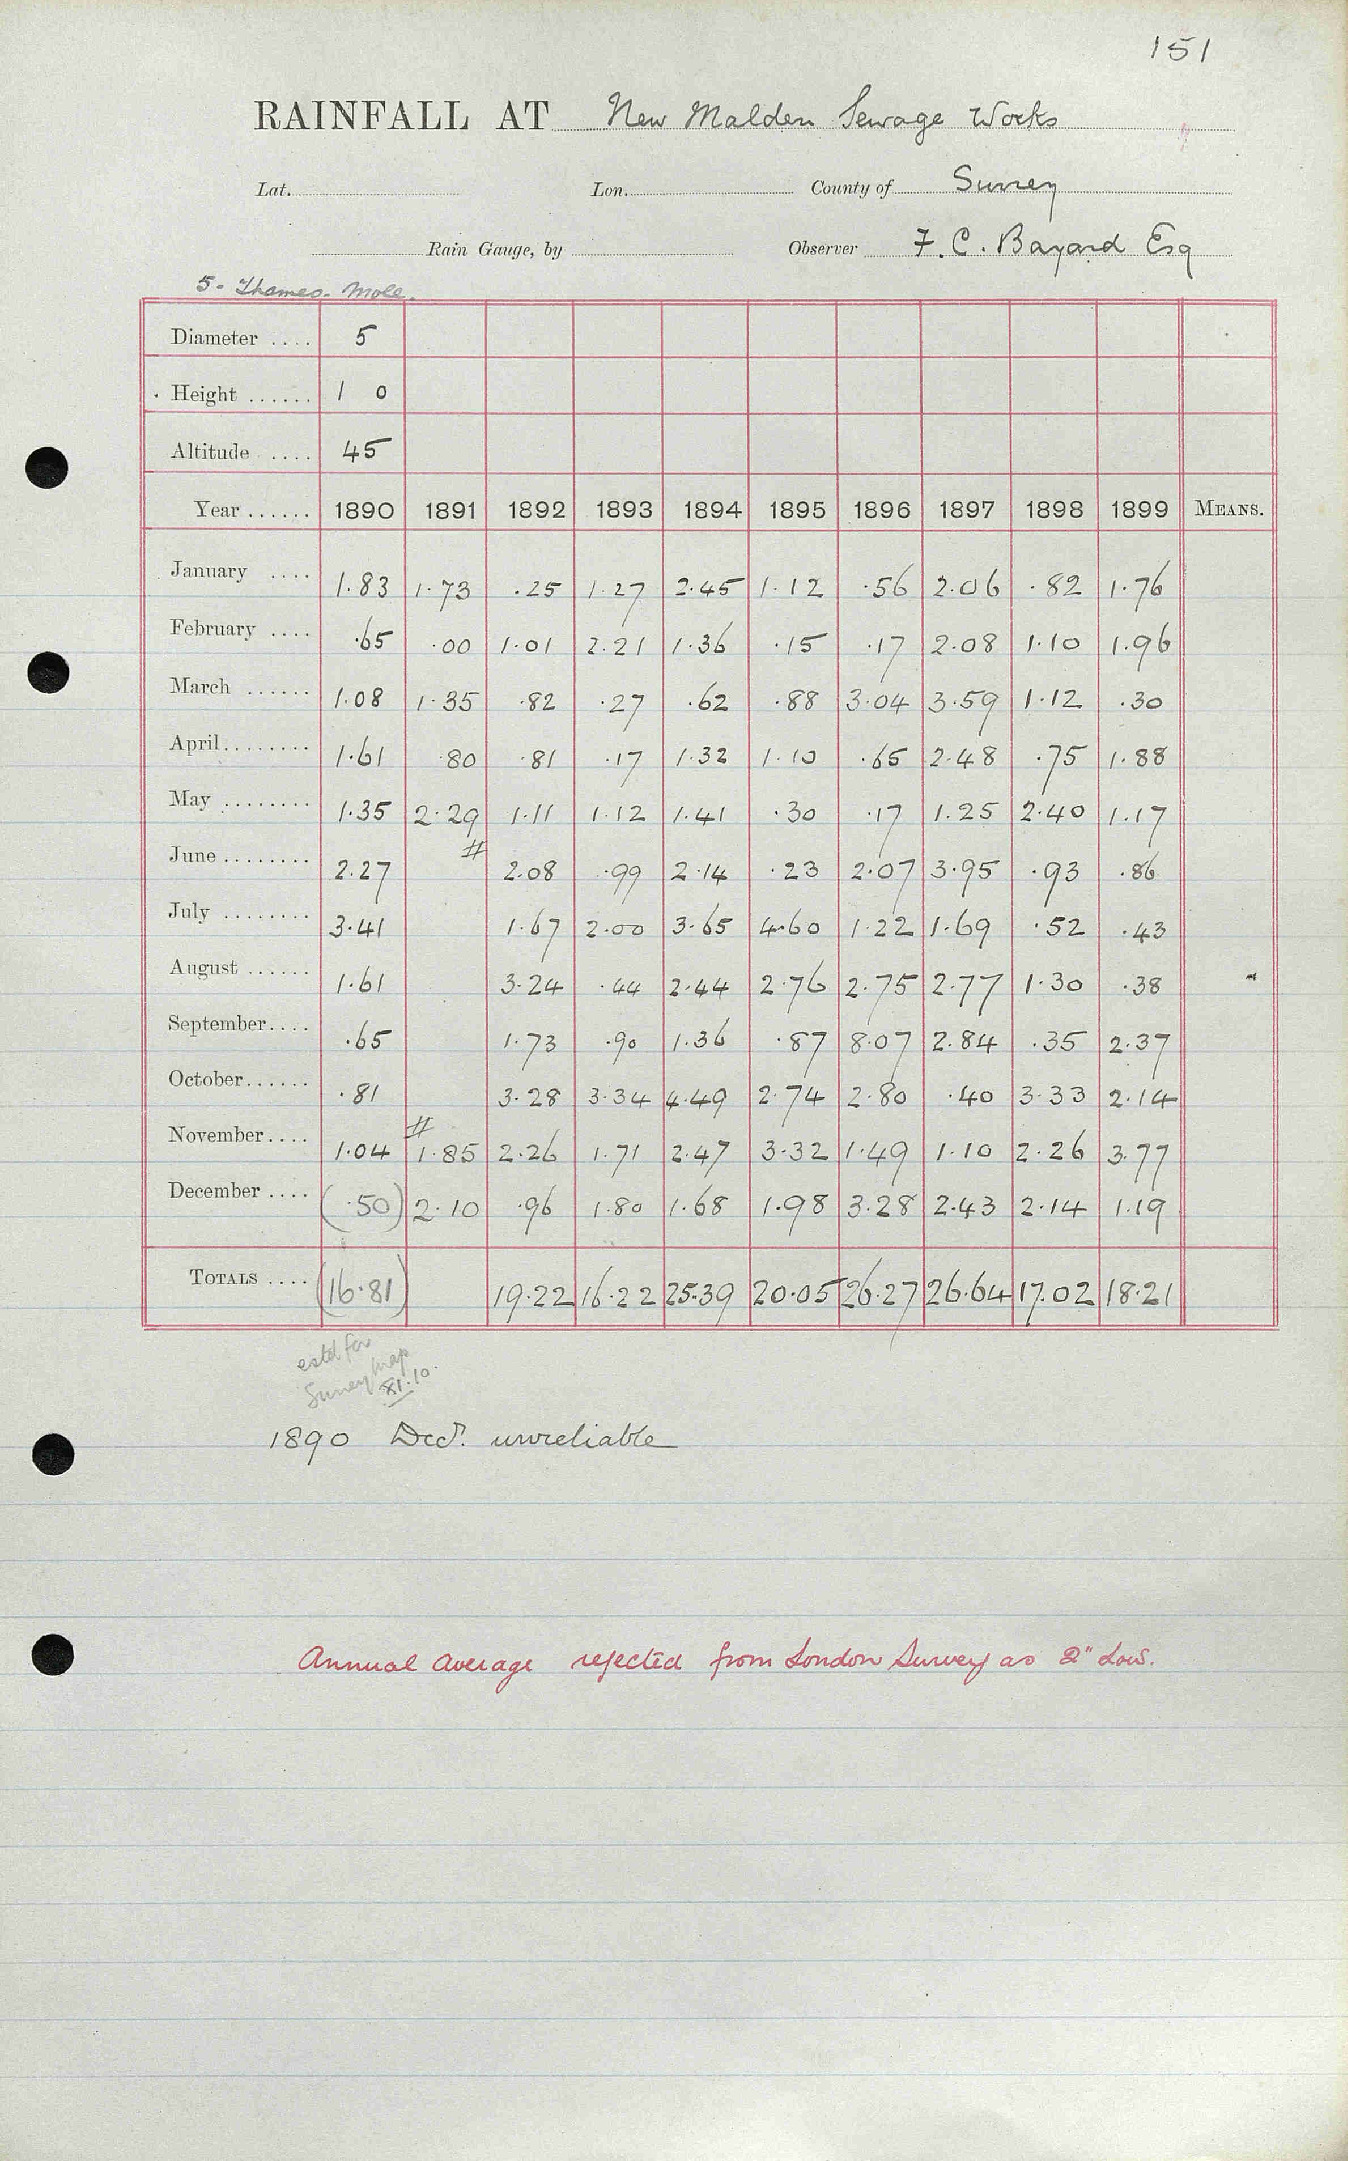 151
RAINFALL AT New Malden Sewage Works
Lat. Lon. County of Surrey
Rain Gauge, by Observer F. C. Bayard Esq
5 - Thames - Mole.
Diameter .... 5
Height ...... 1 0
Altitude .... 45
Year ...... 1890 1891 1892 1893 1894 1895 1896 1897 1898 1899 MEANS.
January .... 1.83 1.73 .25 1.27 2.45 1.12 .56 2.06 .82 1.76
February .... .65 .00 1.01 2.21 1.36 .15 .17 2.08 1.10 1.96
March ...... 1.08 1.35 .82 .27 .62 .88 3.04 3.59 1.12 .30
April........ 1.61 .80 .81 .17 1.32 1.10 .65 2.48 .75 1.88
May ........ 1.35 2.29 1.11 1.12 1.41 .30 .17 1.25 2.40 1.17
June ........ 2.27 # 2.08 .99 2.14 .23 2.07 3.95 .93 .86
July ........ 3.41 1.67 2.00 3.65 4.60 1.22 1.69 .52 .43
August ...... 1.61 3.24 .44 2.44 2.76 2.75 2.77 1.30 .38
September.... .65 1.73 .90 1.36 .87 8.07 2.84 .35 2.37
October...... .81 3.28 3.34 4.49 2.74 2.80 .40 3.33 2.14
November.... 1.04 # 1.85 2.26 1.71 2.47 3.32 1.49 1.10 2.26 3.77
December .... (.50) 2.10 .96 1.80 1.68 1.98 3.28 2.43 2.14 1.19
TOTALS .... (16.81) 19.22 16.22 25.39 20.05 26.27 26.64 17.02 18.21
estd for
Surrey map
81.10.
1890 Decr. unreliable
Annual average rejected from London Survey as 2" low.